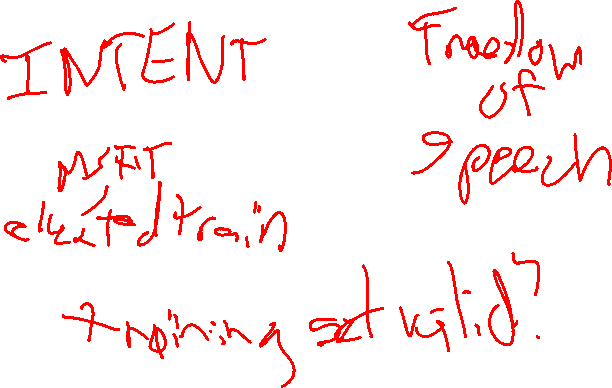 INTENT
Freedom
of
speech
MSFIT
elected train
training set valid?